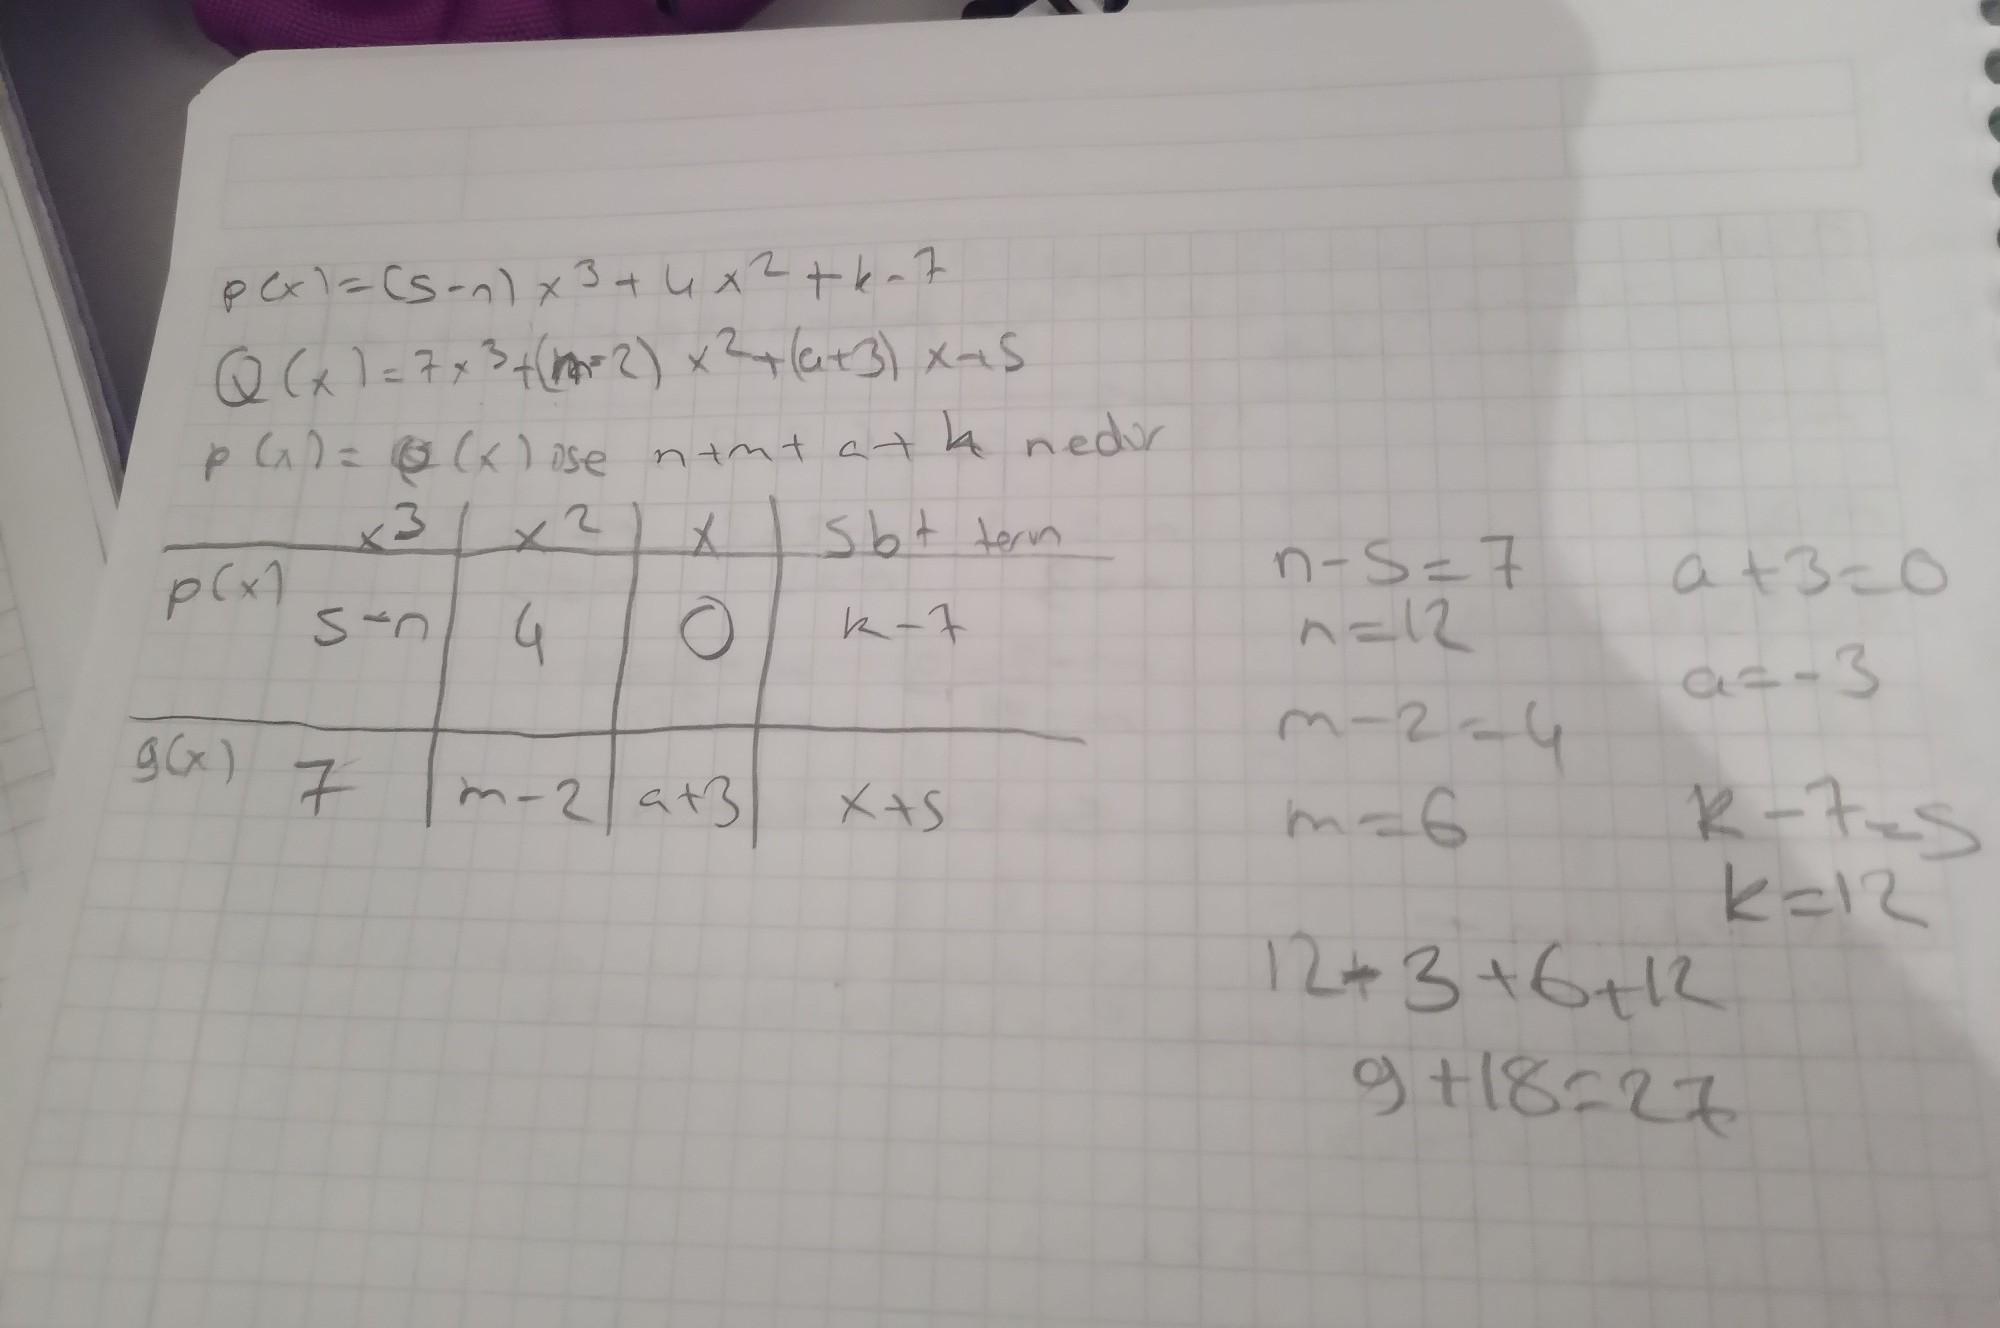 p(x)=(5-n)x³+4x²+k-7
Q(x)=7x³+(m-2)x²+(a+3)x+5
p(x)=Q(x) ise n+m+a+k nedir
x³ x² x Sbt term
p(x) 5-n 4 0 k-7
g(x) 7 m-2 a+3 x+5
n-5=7
n=12
m-2=4
m=6
a+3=0
a=-3
k-7=5
k=12
12+3+6+12
9+18=27